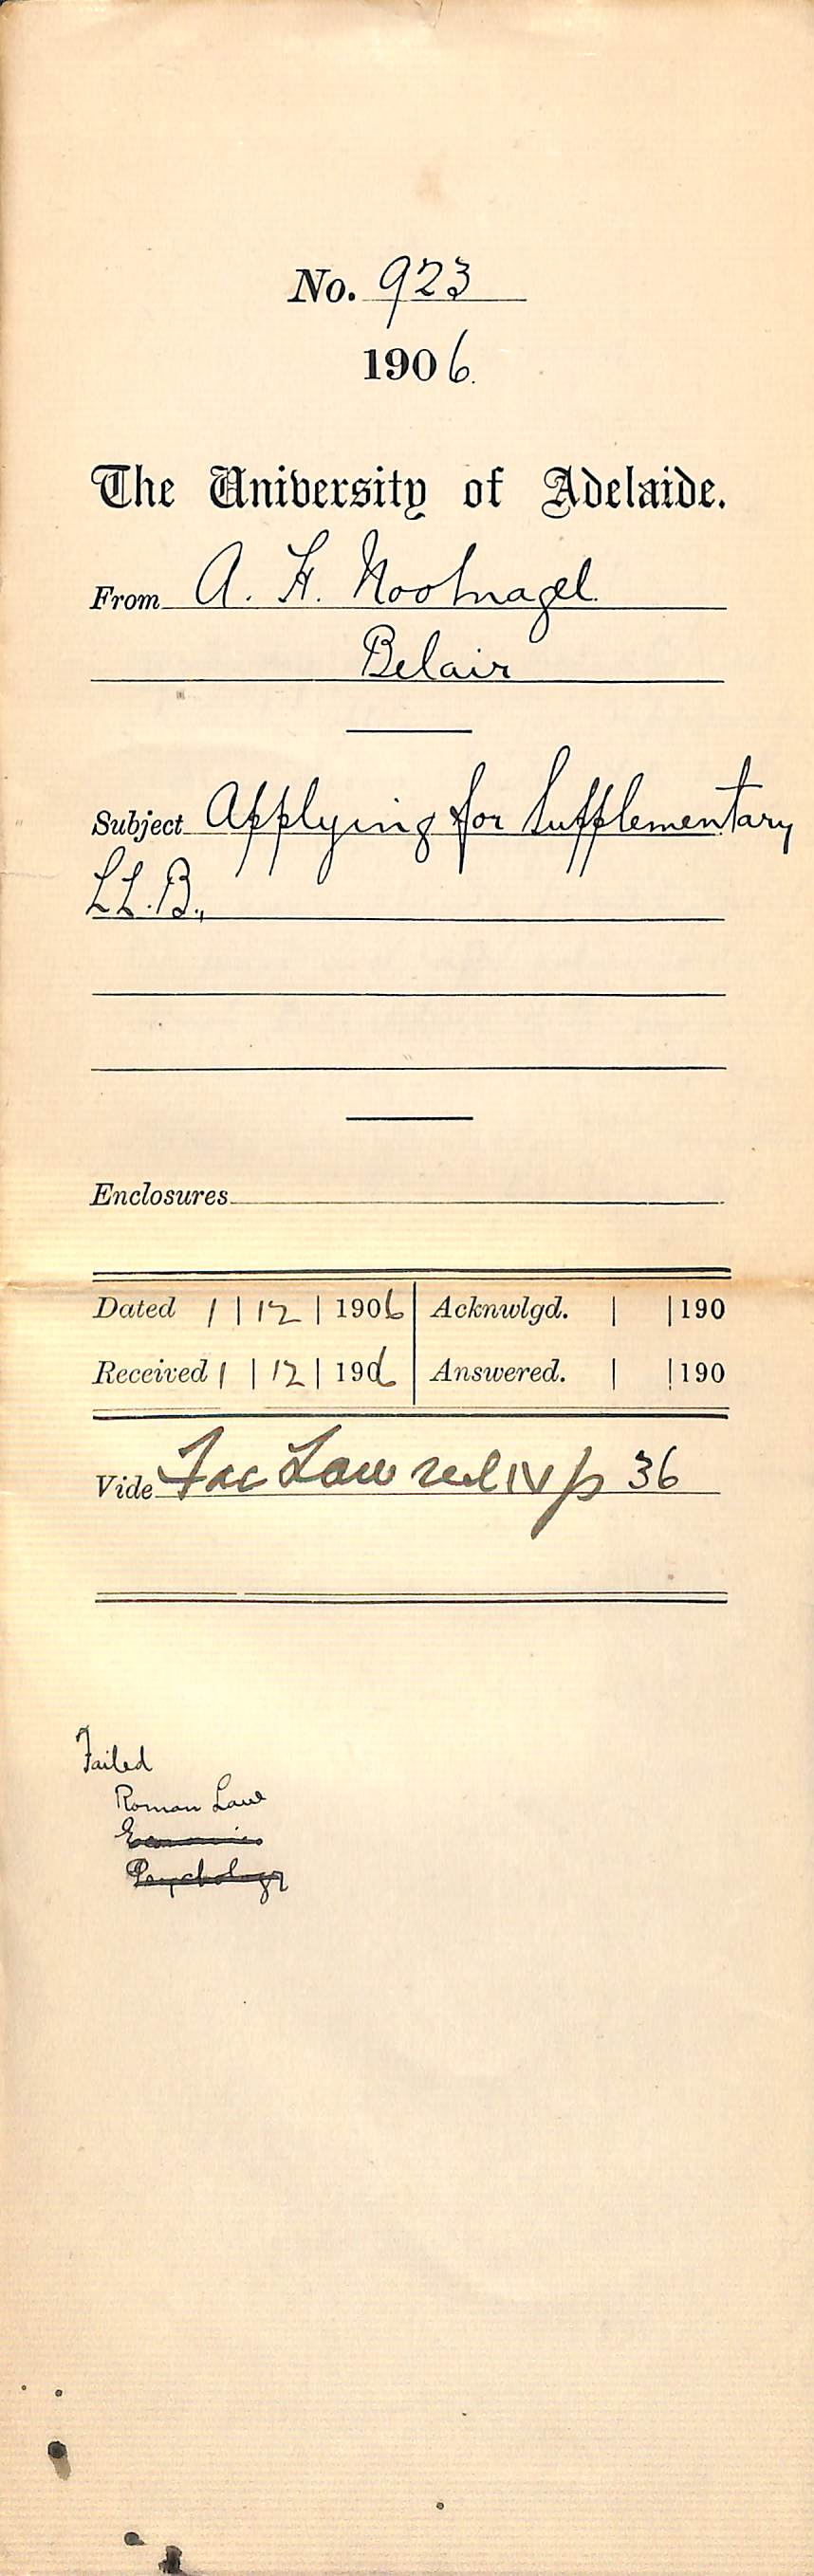 No. 923
1906.
The University of Adelaide.
From A. H. Nootnagel.
Belair
Subject Applying for Supplementary
LL.B.,
Enclosures
Dated 1 | 12 | 1906 Acknwlgd. | | 190
Received 1 | 12 | 1906 Answered. | | 190
Vide Fac Law vol IV p 36
Failed
Roman Law
Economics
Psychology